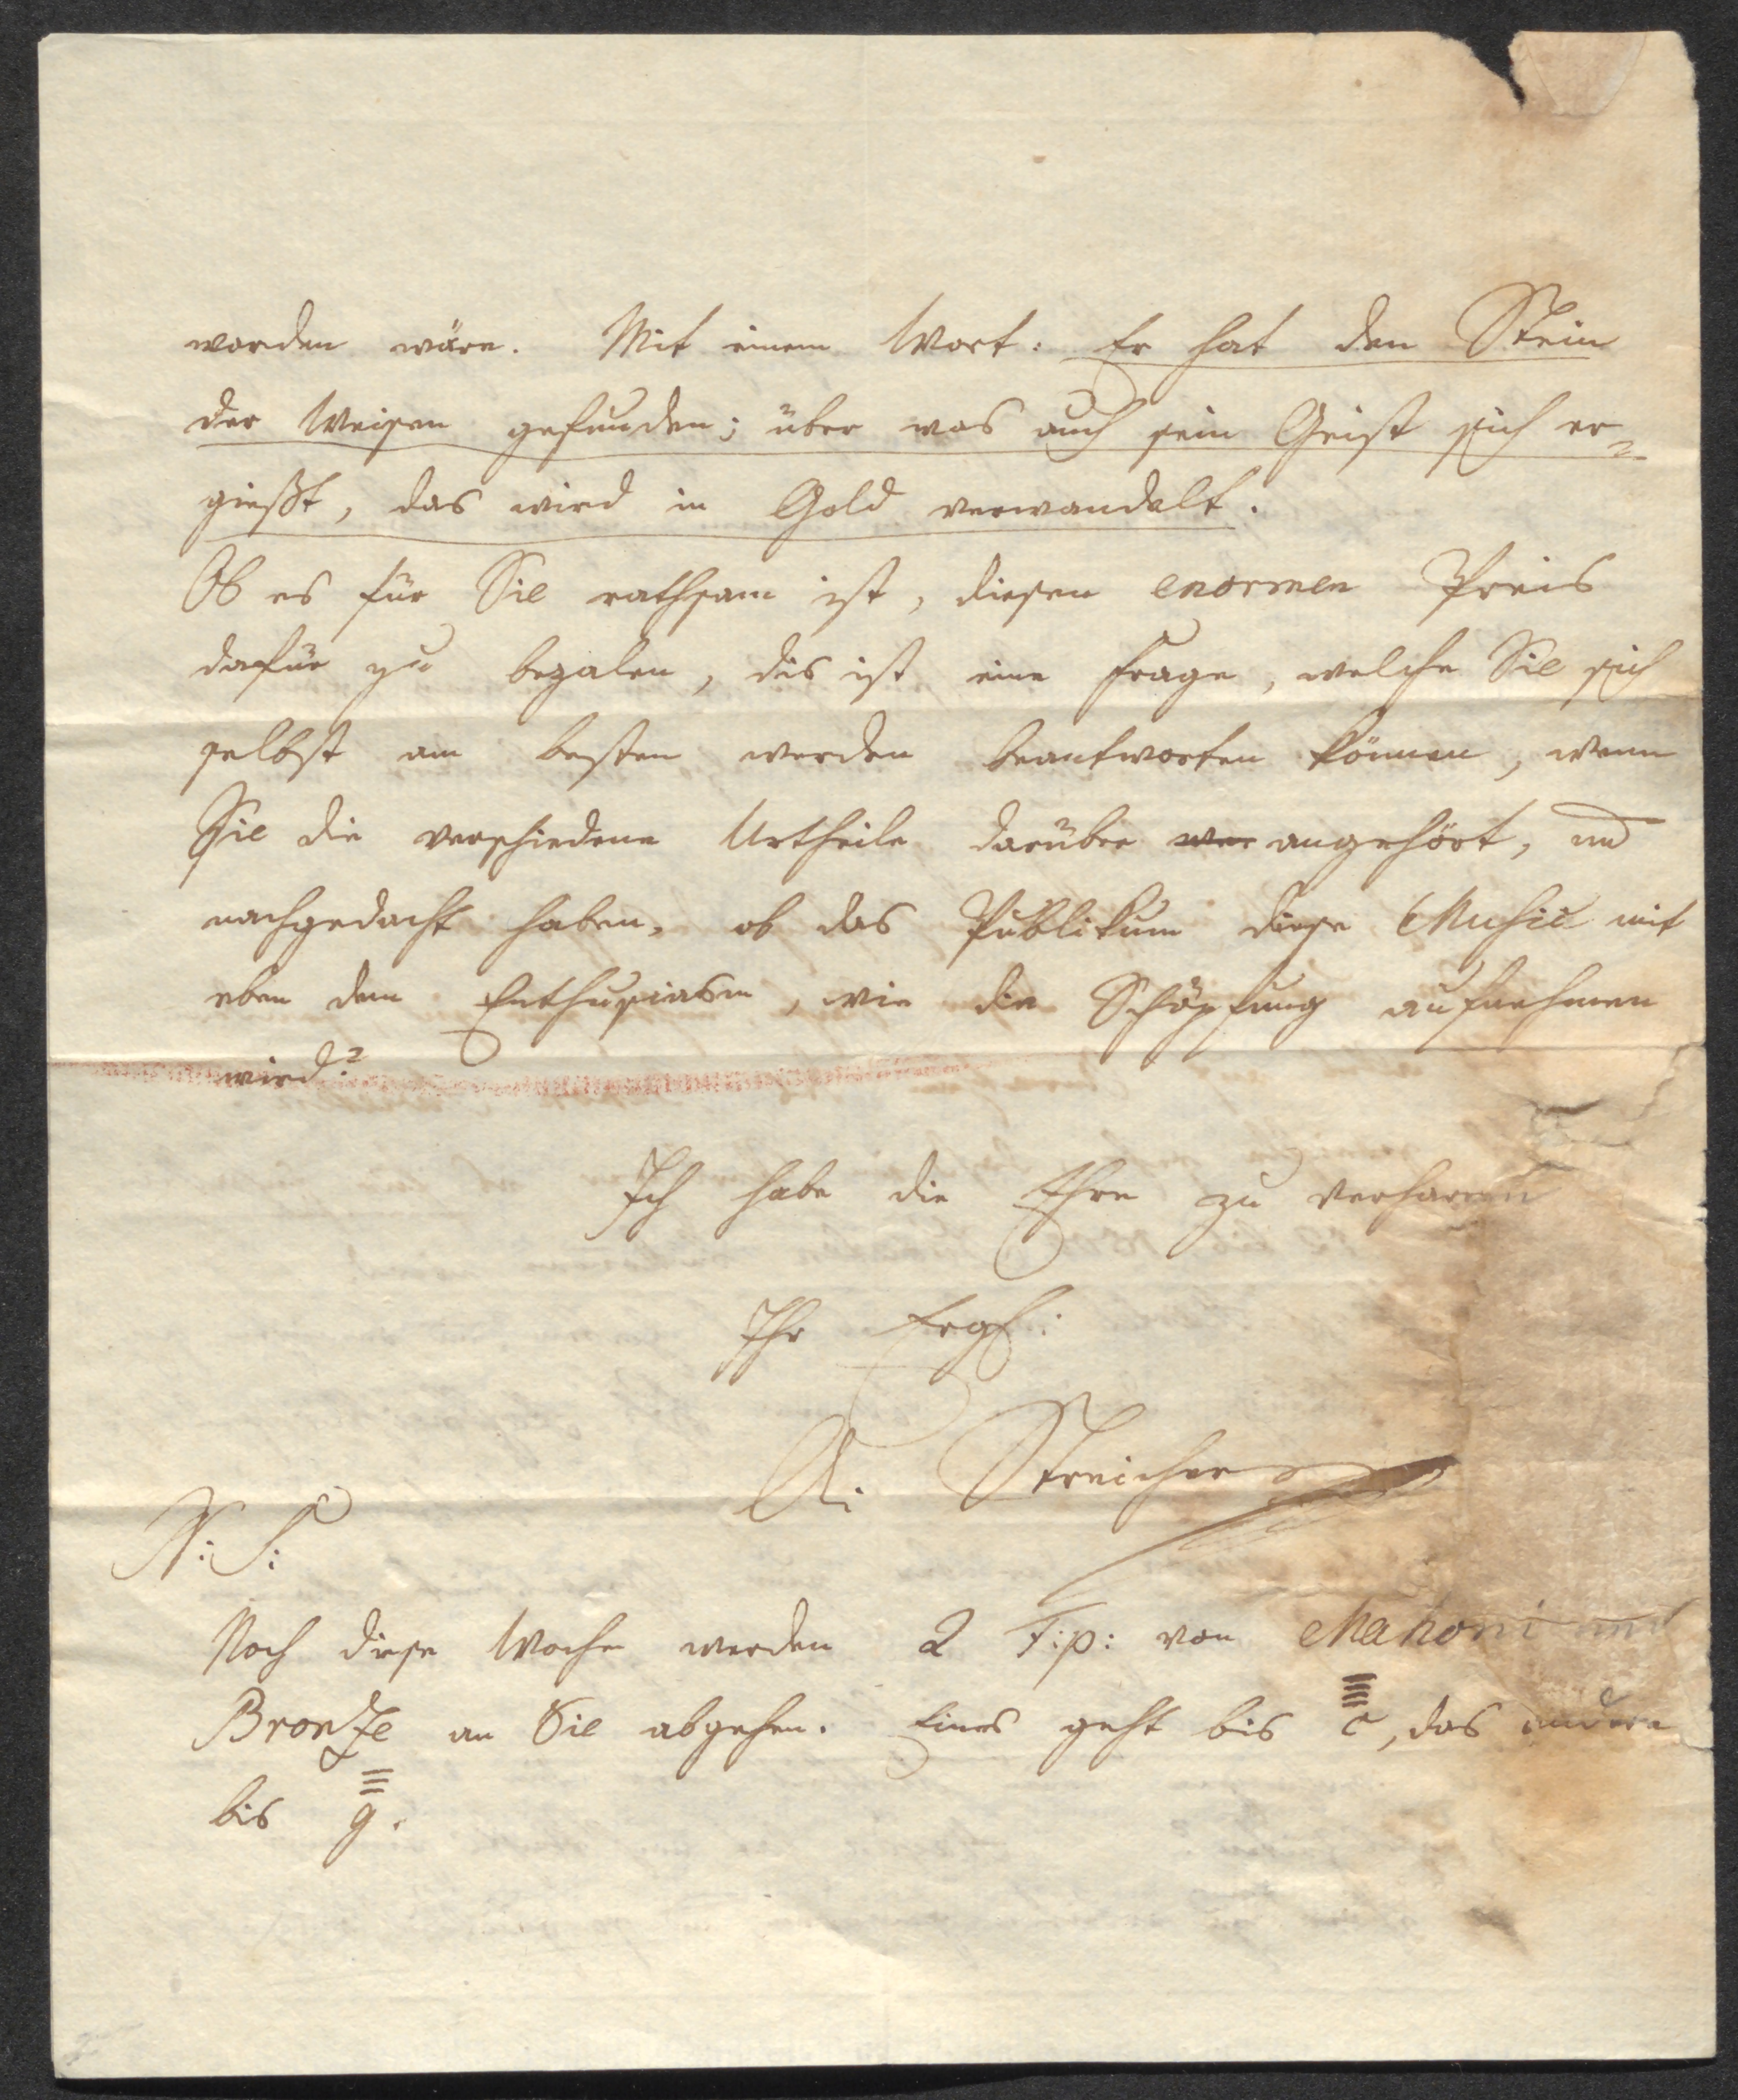 worden wäre. Mit einem Wort: Er hat den Stein
der Weisen gefunden; über was auch sein Geist sich er-
gießt, das wird in Gold verwandelt.
Ob es für Sie rathsam ist, diesen enormen Preis
dafür zu bezalen, dis ist eine Frage, welche Sie sich
selbst am besten werden beantworten können, wenn
Sie die verschiedene Urtheile darüber wer angehört, und
nachgedacht haben, ob das Publikum diese Music mit
eben dem Enthusiasm, wie die Schöpfung aufnehmen
wird?
Ich habe die Ehre zu verharren
Ihr Ergb:
A: Streicher
N: S:
Noch diese Woche werden 2 F:p: von Mahoni und
Bronze an Sie abgehen. Eines geht bis c̿̿, das andere
bis g̿̄.